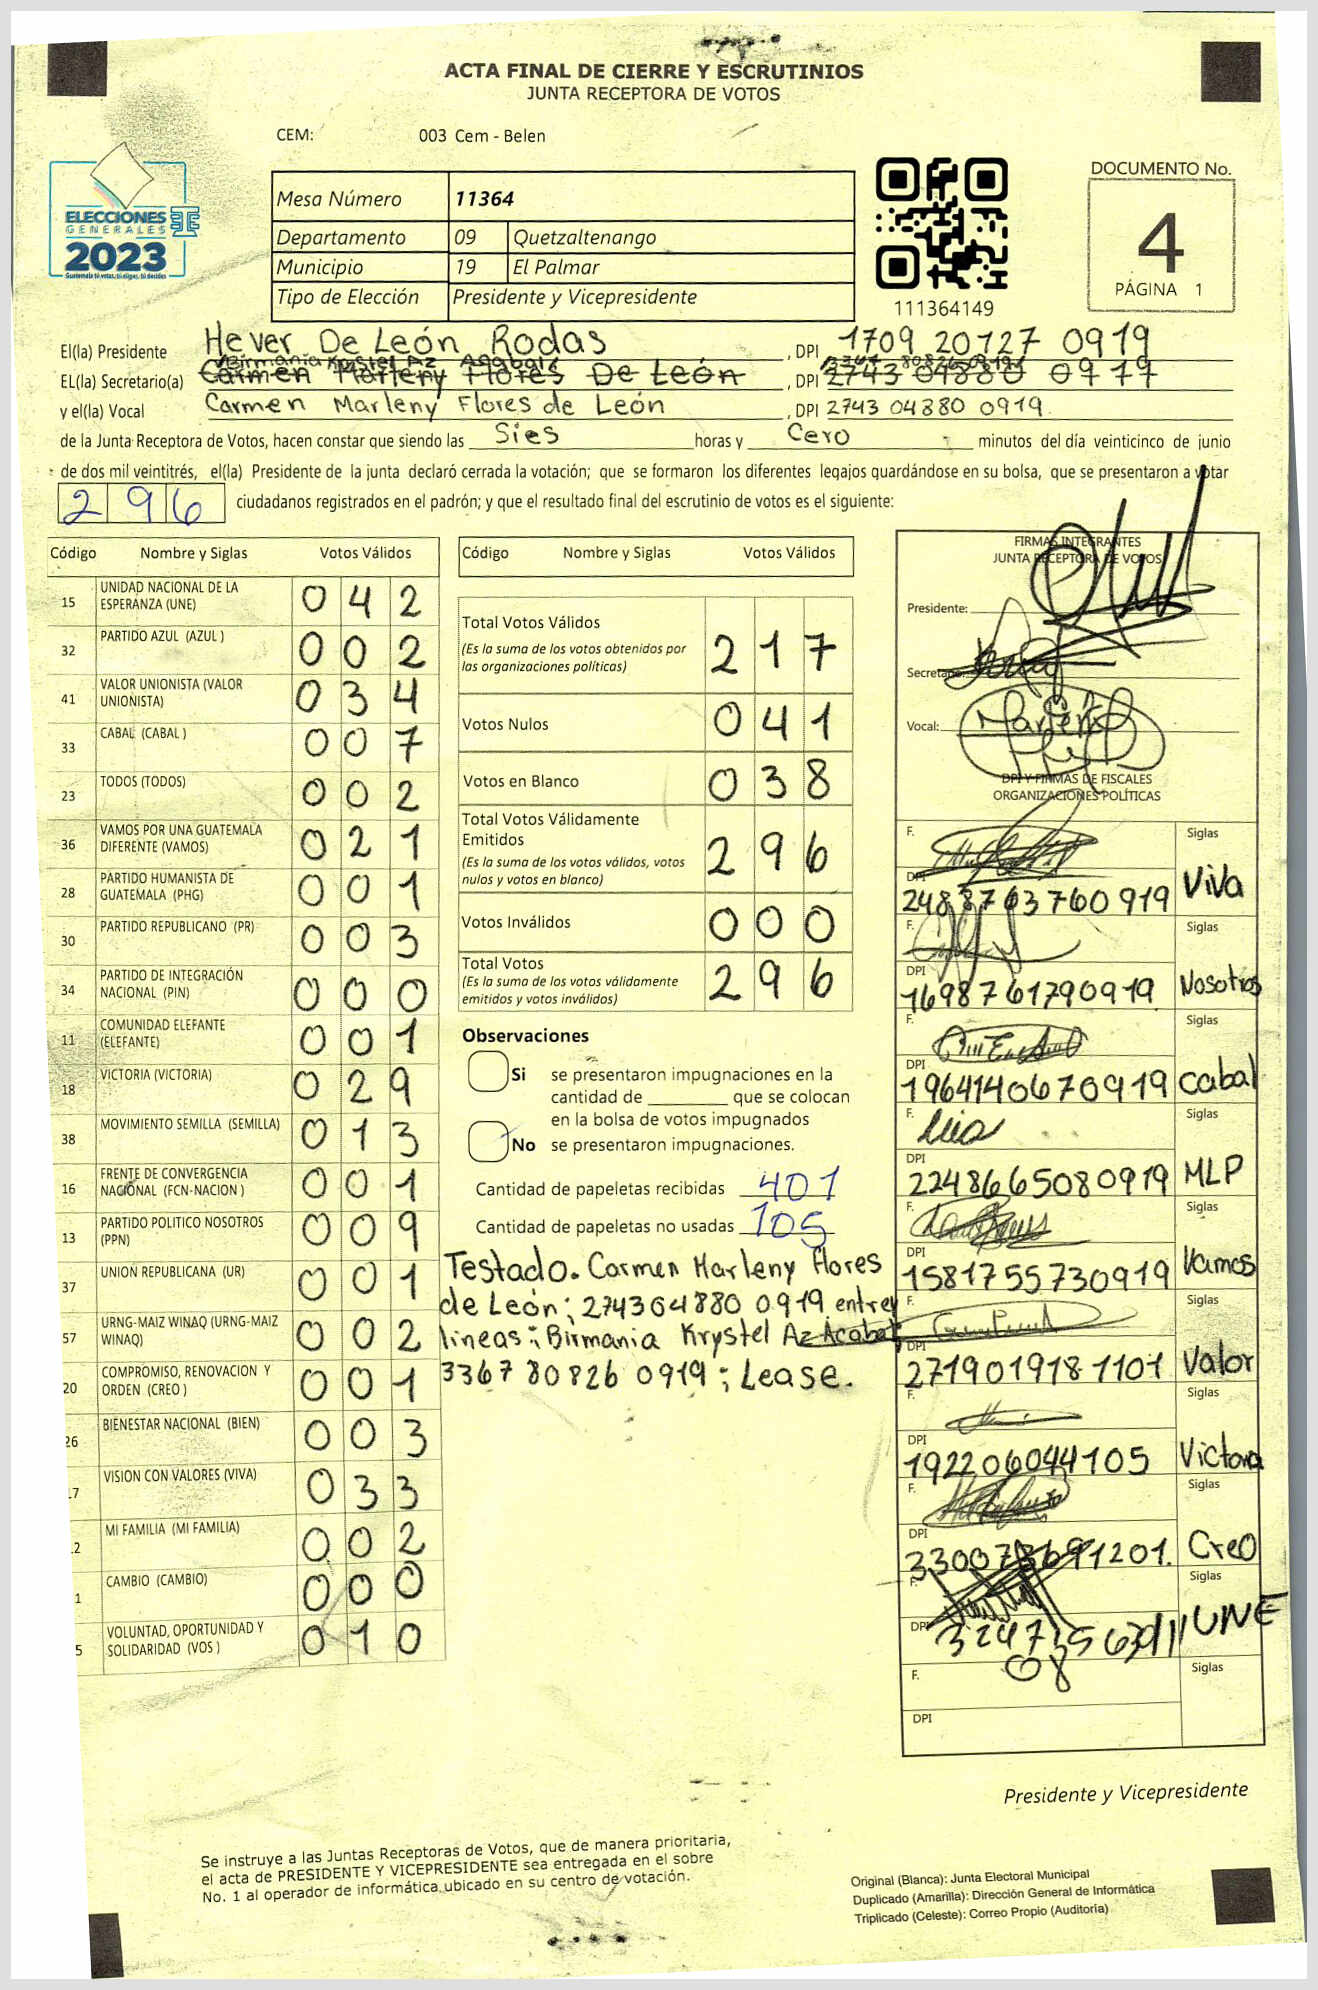 ACTA FINAL DE CIERRE Y ESCRUTINIOS
JUNTA RECEPTORA DE VOTOS
CEM: 003 Cem - Belen
ELECCIONES
GENERALES
2023
Guatemala tú votas, tú eliges, tú decides
Mesa Número 11364
Departamento 09 Quetzaltenango
Municipio 19 El Palmar
Tipo de Elección Presidente y Vicepresidente
111364149
DOCUMENTO No.
4
PÁGINA 1
El(la) Presidente Hever De León Rodas , DPI 1709 20127 0919
Birmania Krystel Az Acabal 3367 80826 0919
EL(la) Secretario(a) Carmen Marleny Flores De León , DPI 2743 04880 0919
y el(la) Vocal Carmen Marleny Flores de León , DPI 2743 04880 0919
de la Junta Receptora de Votos, hacen constar que siendo las Sies horas y Cero minutos del día veinticinco de junio
de dos mil veintitrés, el(la) Presidente de la junta declaró cerrada la votación; que se formaron los diferentes legajos quardándose en su bolsa, que se presentaron a votar
296 ciudadanos registrados en el padrón; y que el resultado final del escrutinio de votos es el siguiente:
Código Nombre y Siglas Votos Válidos
15 UNIDAD NACIONAL DE LA ESPERANZA (UNE) 042
32 PARTIDO AZUL (AZUL ) 002
41 VALOR UNIONISTA (VALOR UNIONISTA) 034
33 CABAL (CABAL ) 007
23 TODOS (TODOS) 002
36 VAMOS POR UNA GUATEMALA DIFERENTE (VAMOS) 021
28 PARTIDO HUMANISTA DE GUATEMALA (PHG) 001
30 PARTIDO REPUBLICANO (PR) 003
34 PARTIDO DE INTEGRACIÓN NACIONAL (PIN) 000
11 COMUNIDAD ELEFANTE (ELEFANTE) 001
18 VICTORIA (VICTORIA) 029
38 MOVIMIENTO SEMILLA (SEMILLA) 013
16 FRENTE DE CONVERGENCIA NACIONAL (FCN-NACION ) 001
13 PARTIDO POLITICO NOSOTROS (PPN) 009
37 UNION REPUBLICANA (UR) 001
57 URNG-MAIZ WINAQ (URNG-MAIZ WINAQ) 002
20 COMPROMISO, RENOVACION Y ORDEN (CREO ) 001
26 BIENESTAR NACIONAL (BIEN) 003
7 VISION CON VALORES (VIVA) 033
2 MI FAMILIA (MI FAMILIA) 002
1 CAMBIO (CAMBIO) 000
5 VOLUNTAD, OPORTUNIDAD Y SOLIDARIDAD (VOS ) 010
Código Nombre y Siglas Votos Válidos
Total Votos Válidos 217
(Es la suma de los votos obtenidos por
las organizaciones políticas)
Votos Nulos 041
Votos en Blanco 038
Total Votos Válidamente
Emitidos 296
(Es la suma de los votos válidos, votos
nulos y votos en blanco)
Votos Inválidos 000
Total Votos 296
(Es la suma de los votos válidamente
emitidos y votos inválidos)
Observaciones
Si se presentaron impugnaciones en la
cantidad de ________ que se colocan
en la bolsa de votos impugnados
No se presentaron impugnaciones.
Cantidad de papeletas recibidas 401
Cantidad de papeletas no usadas 105
Testado. Carmen Marleny Flores
de León; 2743 04880 0919 entrey
lineas; Birmania Krystel Az Acabal;
3367 80826 0919; Lease.
FIRMAS INTEGRANTES
JUNTA RECEPTORA DE VOTOS
Presidente:
Secretario:
Vocal:
DPI Y FIRMAS DE FISCALES
ORGANIZACIONES POLÍTICAS
F. Siglas
DPI 2488763760919 Viva
F. Siglas
DPI 1698761790919 Nosotros
F. Siglas
DPI 1964140670919 Cabal
F. Siglas
DPI 2248666508 0919 MLP
F. Siglas
DPI 1581755730919 Vamos
F. Siglas
DPI 2719019181101 Valor
F. Siglas
DPI 192206044105 Victoria
F. Siglas
DPI Creo
F. Siglas
DPI UNE
F. Siglas
DPI
Presidente y Vicepresidente
Se instruye a las Juntas Receptoras de Votos, que de manera prioritaria,
el acta de PRESIDENTE Y VICEPRESIDENTE sea entregada en el sobre
No. 1 al operador de informática ubicado en su centro de votación.
Original (Blanca): Junta Electoral Municipal
Duplicado (Amarilla): Dirección General de Informática
Triplicado (Celeste): Correo Propio (Auditoria)